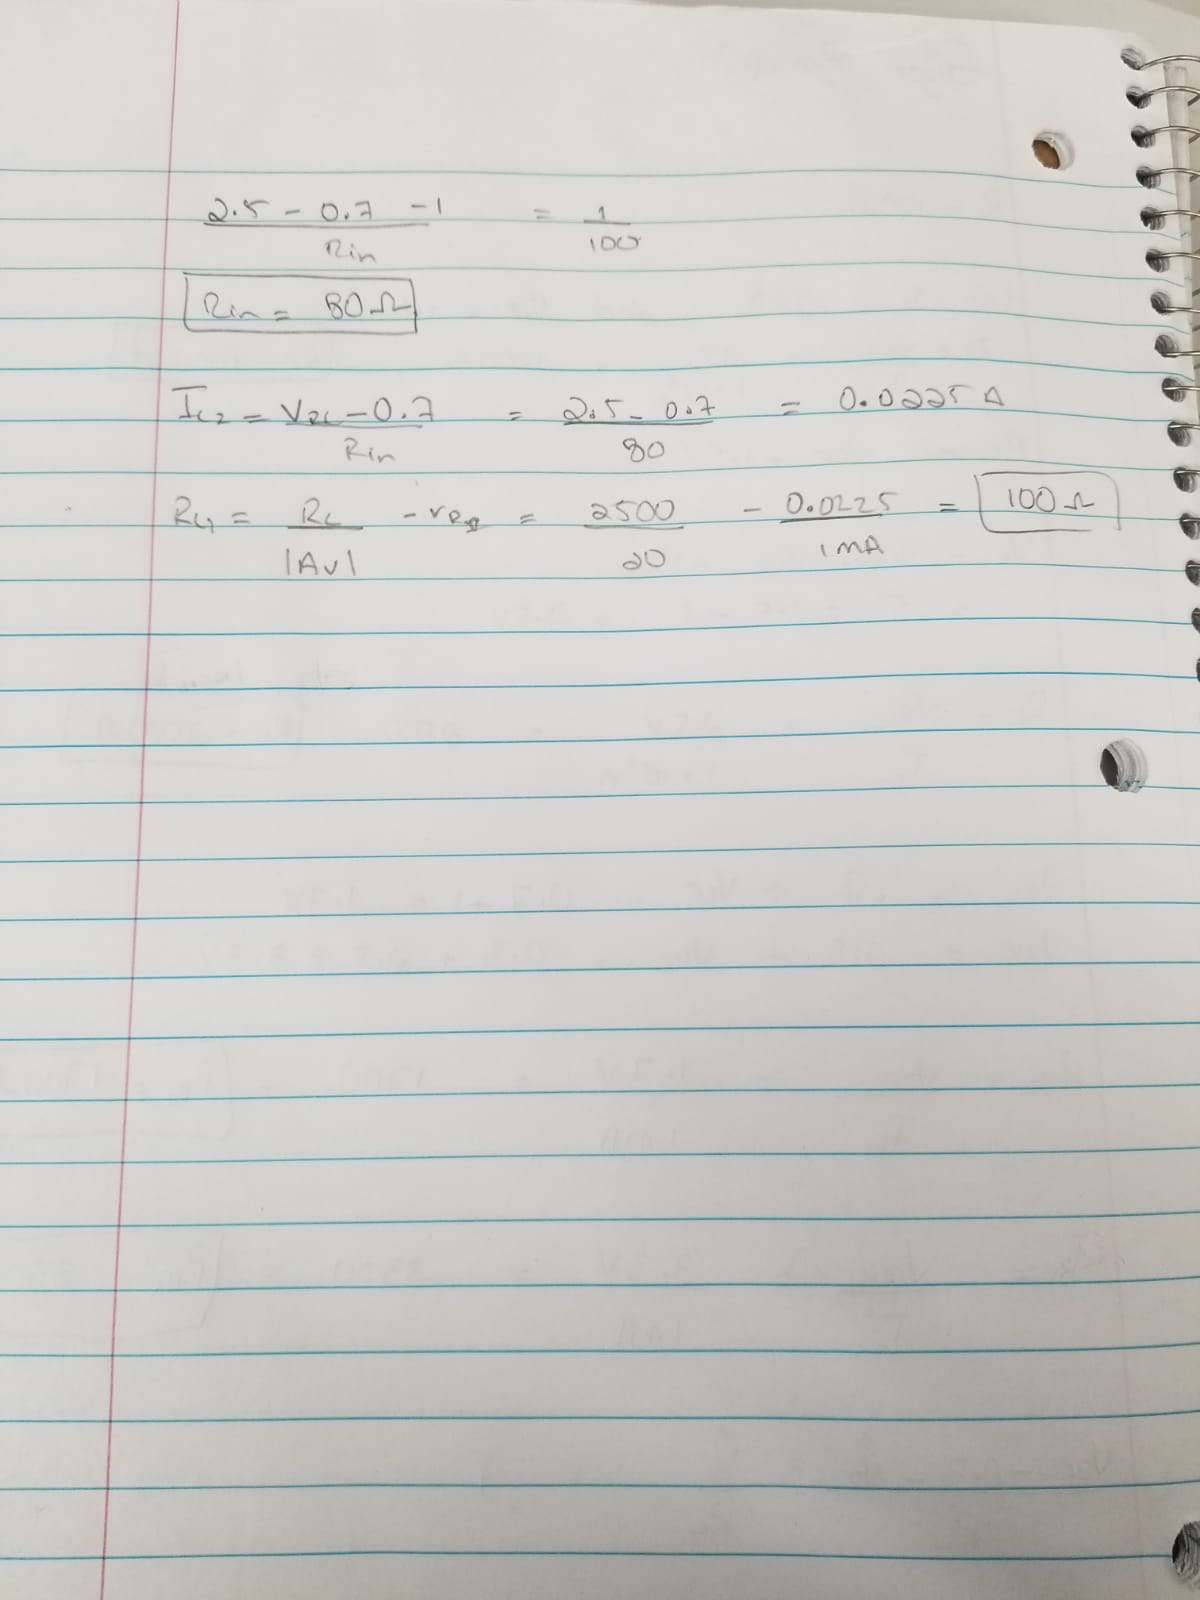 2.5 - 0.7 - 1 / Rin = 1 / 100
Rin = 80Ω
Ic2 = VRC - 0.7 / Rin = 2.5 - 0.7 / 80 = 0.0225 A
= RC / |Av| - = 2500 / 20 - 0.0225 / 1mA = 100Ω